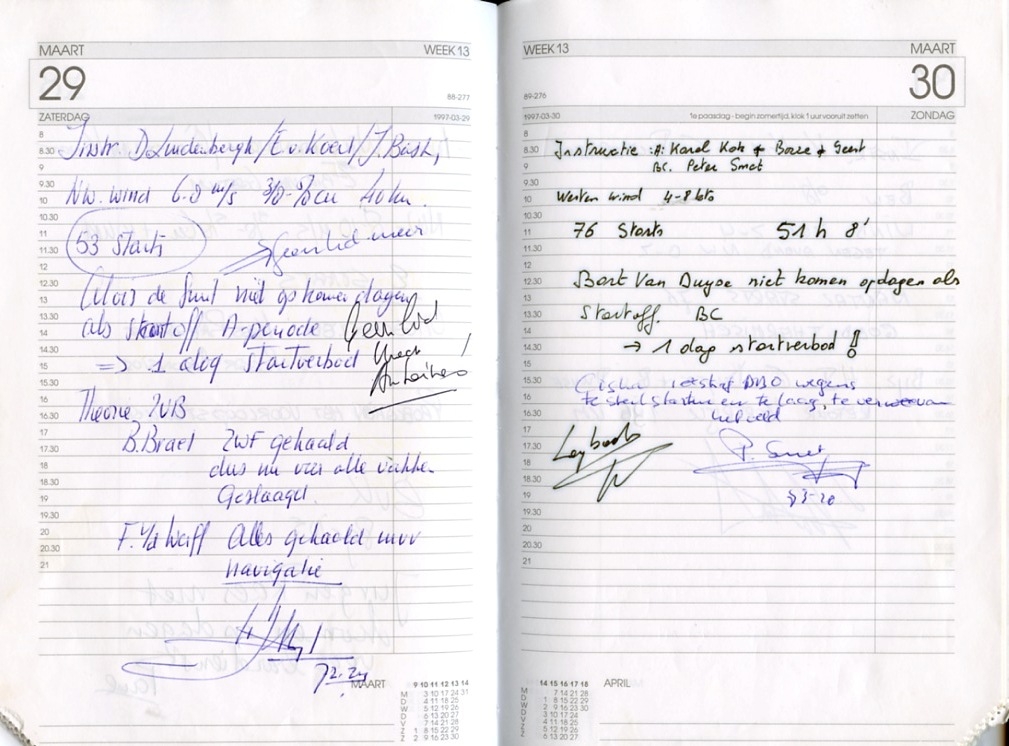 MAART WEEK 13
29
88-277
ZATERDAG 1997-03-29
8
8.30 Instr. D Lindenbergh / E v. Koert / J. Bash,
9
9.30 NW. wind 6-8 m/s 3/8-5/8 cu 40 km.
10
10.30
11 53 starts geen lid meer
11.30
12
12.30 de Smit niet op komen dagen
13
13.30 als startoff A-periode Geen lid
14
14.30 meer !
15 => 1 dag startverbod
15.30
16 Theorie ZVB
16.30
17 B. Brael ZWF gehaald
17.30
18 dus nu voor alle vakken
18.30
19 Geslaagd.
19.30
20 F. v/d Werff Alles gehaald
20.30
21 navigatie
MAART
9 10 11 12 13 14
M 3 10 17 24 31
D 4 11 18 25
W 5 12 19 26
D 6 13 20 27
V 7 14 21 28
Z 1 8 15 22 29
Z 2 9 16 23 30
WEEK 13 MAART
30
89-276
1997-03-30 1e paasdag - begin zomertijd, klok 1 uur vooruit zetten ZONDAG
8
8.30 Instructie :A: Karel Kok + Bosse + Geert
9 BC. Peter Smet
9.30
10 Westen wind 4-8 kts
10.30
11 76 Starts 51 h 8'
11.30
12
12.30 Bart Van Duyse niet komen opdagen als
13
13.30 Startoff. BC
14
14.30 → 1 dag startverbod !
15
15.30 DBO wegens
16 te steil starten en te laag, te ver
16.30 het veld
17
17.30 P. Smet
18
18.30
19
19.30
20
20.30
21
14 15 16 17 18 APRIL
M 7 14 21 28
D 1 8 15 22 29
W 2 9 16 23 30
D 3 10 17 24
V 4 11 18 25
Z 5 12 19 26
Z 6 13 20 27